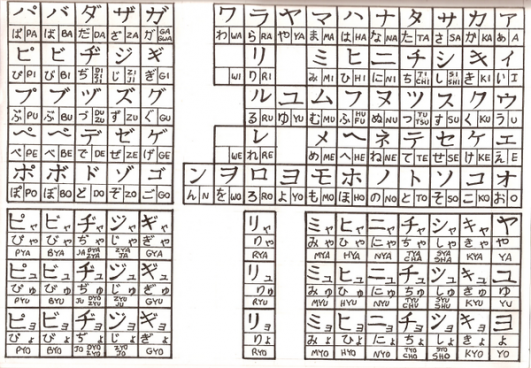 パ バ ダ ザ ガ ワ ラ ヤ マ ハ ナ タ サ カ ア
ぱ PA ば BA だ DA ざ ZA が GA わ WA ら RA や YA ま MA は HA な NA た TA さ SA か KA あ A
ピ ビ ヂ ジ ギ リ ミ ヒ ニ チ シ キ イ
ぴ PI び BI ぢ DI ZI じ ZI JI ぎ GI WI り RI み MI ひ HI に NI ち TI CHI し SI SHI き KI い I
プ ブ ヅ ズ グ ル ユ ム フ ヌ ツ ス ク ウ
ぷ PU ぶ BU づ DU ZU ず ZU ぐ GU る RU ゆ YU む MU ふ HU FU ぬ NU つ TU TSU す SU く KU う U
ペ ベ デ ゼ ゲ レ メ ヘ ネ テ セ ケ エ
ぺ PE べ BE で DE ぜ ZE げ GE WE れ RE め ME へ HE ね NE て TE せ SE け KE え E
ポ ボ ド ゾ ゴ ン ヲ ロ ヨ モ ホ ノ ト ソ コ オ
ぽ PO ぼ BO ど DO ぞ ZO ご GO ん N を WO ろ RO よ YO も MO ほ HO の NO と TO そ SO こ KO お O
ピャ ビャ ヂャ ジャ ギャ リャ ミャ ヒャ ニャ チャ シャ キャ ヤ
ぴゃ びゃ ぢゃ じゃ ぎゃ りゃ みゃ ひゃ にゃ ちゃ しゃ きゃ や
PYA BYA JA DYA ZYA ZYA JA GYA RYA MYA HYA NYA TYA CHA SYA SHA KYA YA
ピュ ビュ ヂュ ジュ ギュ リュ ミュ ヒュ ニュ チュ シュ キュ ユ
ぴゅ びゅ ぢゅ じゅ ぎゅ りゅ みゅ ひゅ にゅ ちゅ しゅ きゅ ゆ
PYU BYU JU DYU ZYU ZYU JU GYU RYU MYU HYU NYU TYU CHU SYU SHU KYU YU
ピョ ビョ ヂョ ジョ ギョ リョ ミョ ヒョ ニョ チョ ショ キョ ヨ
ぴょ びょ ぢょ じょ ぎょ りょ みょ ひょ にょ ちょ しょ きょ よ
PYO BYO JO DYO ZYO ZYO JO GYO RYO MYO HYO NYO TYO CHO SYO SHO KYO YO